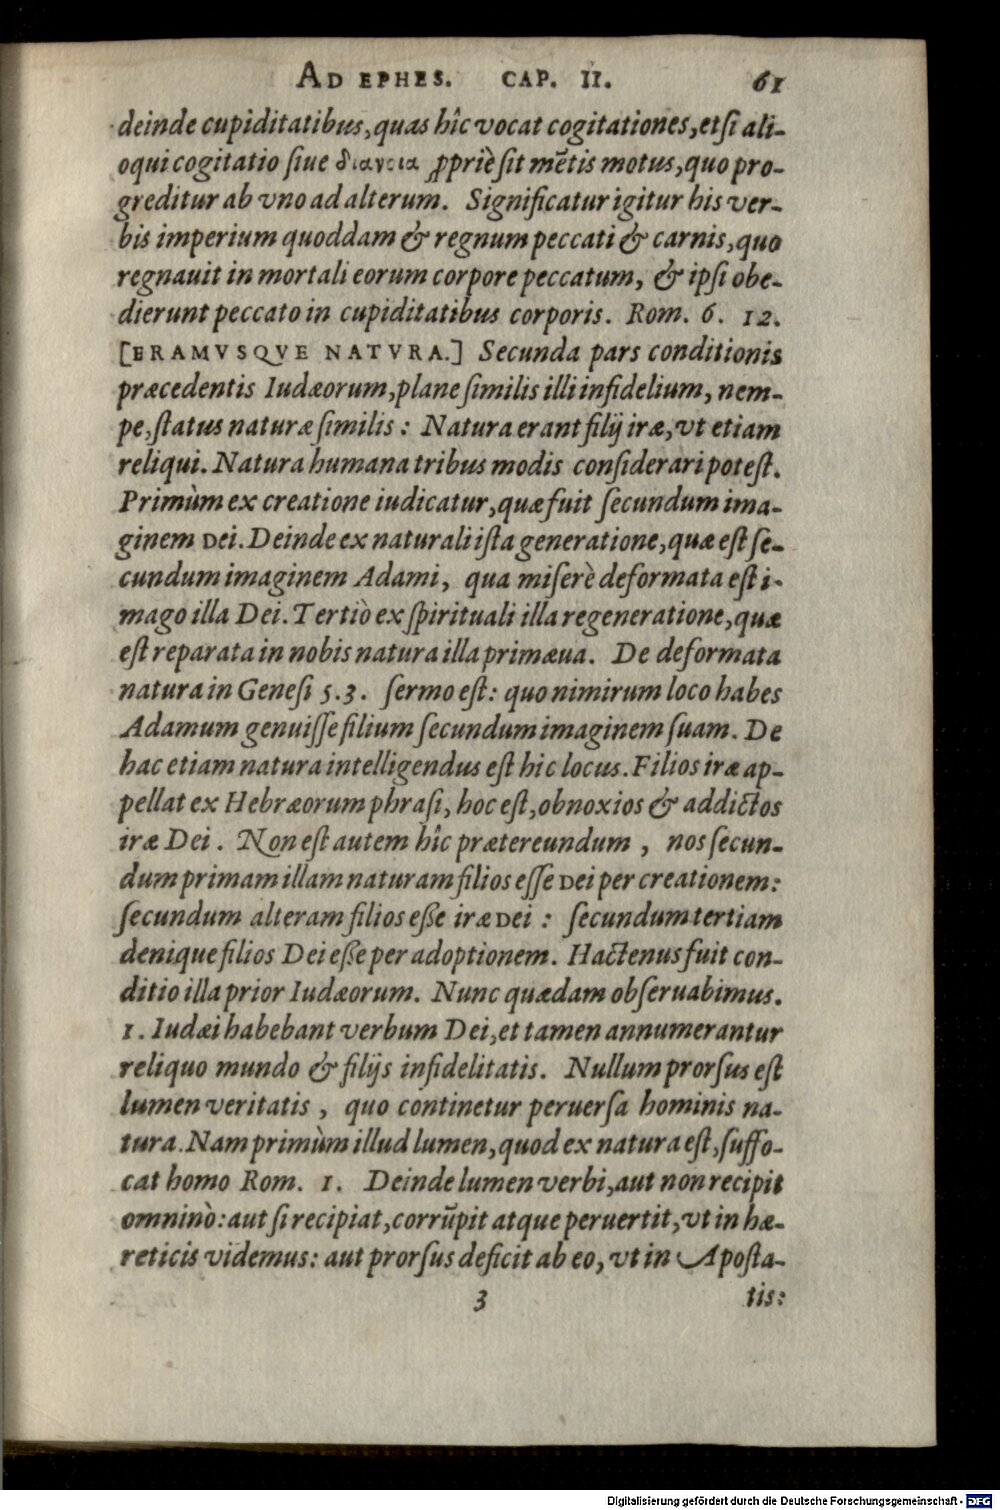 AD EPHES. CAP. II. 61
deinde cupiditatibus, quas hîc vocat cogitationes, etsi ali-
oqui cogitatio siue διανοια ꝓpriè sit mẽtis motus, quo pro-
greditur ab vno ad alterum. Significatur igitur his ver-
bis imperium quoddam & regnum peccati & carnis, quo
regnauit in mortali eorum corpore peccatum, & ipsi obe-
dierunt peccato in cupiditatibus corporis. Rom. 6. 12.
[ERAMVSQVE NATVRA.] Secunda pars conditionis
præcedentis Iudæorum, plane similis illi infidelium, nem-
pe, status naturæ similis: Natura erant filij iræ, vt etiam
reliqui. Natura humana tribus modis considerari potest.
Primùm ex creatione iudicatur, quæ fuit secundum ima-
ginem DEI. Deinde ex naturali ista generatione, quæ est se-
cundum imaginem Adami, qua miserè deformata est i-
mago illa Dei. Tertiò ex spirituali illa regeneratione, quæ
est reparata in nobis natura illa primæua. De deformata
natura in Genesi 5.3. sermo est: quo nimirum loco habes
Adamum genuisse filium secundum imaginem suam. De
hac etiam natura intelligendus est hic locus. Filios iræ ap-
pellat ex Hebræorum phrasi, hoc est, obnoxios & addictos
iræ Dei. Non est autem hîc prætereundum, nos secun-
dum primam illam naturam filios esse DEI per creationem:
secundum alteram filios eße iræ DEI: secundum tertiam
denique filios Dei eße per adoptionem. Hactenus fuit con-
ditio illa prior Iudæorum. Nunc quædam obseruabimus.
1. Iudæi habebant verbum Dei, et tamen annumerantur
reliquo mundo & filijs infidelitatis. Nullum prorsus est
lumen veritatis, quo continetur peruersa hominis na-
tura. Nam primùm illud lumen, quod ex natura est, suffo-
cat homo Rom. 1. Deinde lumen verbi, aut non recipit
omninò: aut si recipiat, corrũpit atque peruertit, vt in hæ-
reticis videmus: aut prorsus deficit ab eo, vt in Aposta-
3 tis:
Digitalisierung gefördert durch die Deutsche Forschungsgemeinschaft - DFG